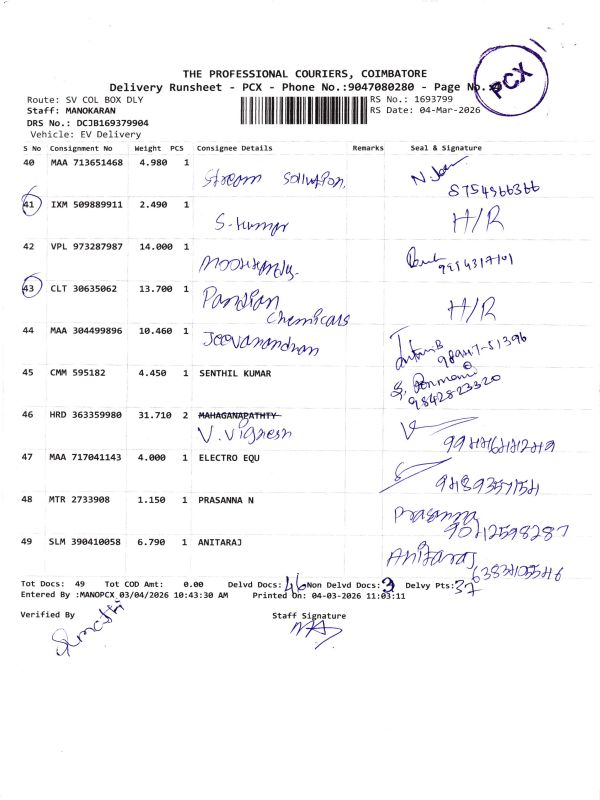 PCX
THE PROFESSIONAL COURIERS, COIMBATORE
Delivery Runsheet - PCX - Phone No.:9047080280 - Page No.:
Route: SV COL BOX DLY RS No.: 1693799
Staff: MANOKARAN RS Date: 04-Mar-2026
DRS No.: DCJB169379904
Vehicle: EV Delivery
S No Consignment No Weight PCS Consignee Details Remarks Seal & Signature
40 MAA 713651468 4.980 1 Stream
8754966366
41 IXM 509889911 2.490 1 S-Kumar H/R
42 VPL 973287987 14.000 1
43 CLT 30635062 13.700 1 Pandian Chemicals H/R
44 MAA 304499896 10.460 1 Jeevanandhan
45 CMM 595182 4.450 1 SENTHIL KUMAR
9842823320
46 HRD 363359980 31.710 2 MAHAGANAPATHTY
V. Vignesh
47 MAA 717041143 4.000 1 ELECTRO EQU
48 MTR 2733908 1.150 1 PRASANNA N Prasanna
49 SLM 390410058 6.790 1 ANITARAJ Anitaraj
Tot Docs: 49 Tot COD Amt: 0.00 Delvd Docs: 46 Non Delvd Docs: 3 Delvy Pts: 37
Entered By :MANOPCX 03/04/2026 10:43:30 AM Printed On: 04-03-2026 11:03:11
Verified By Staff Signature